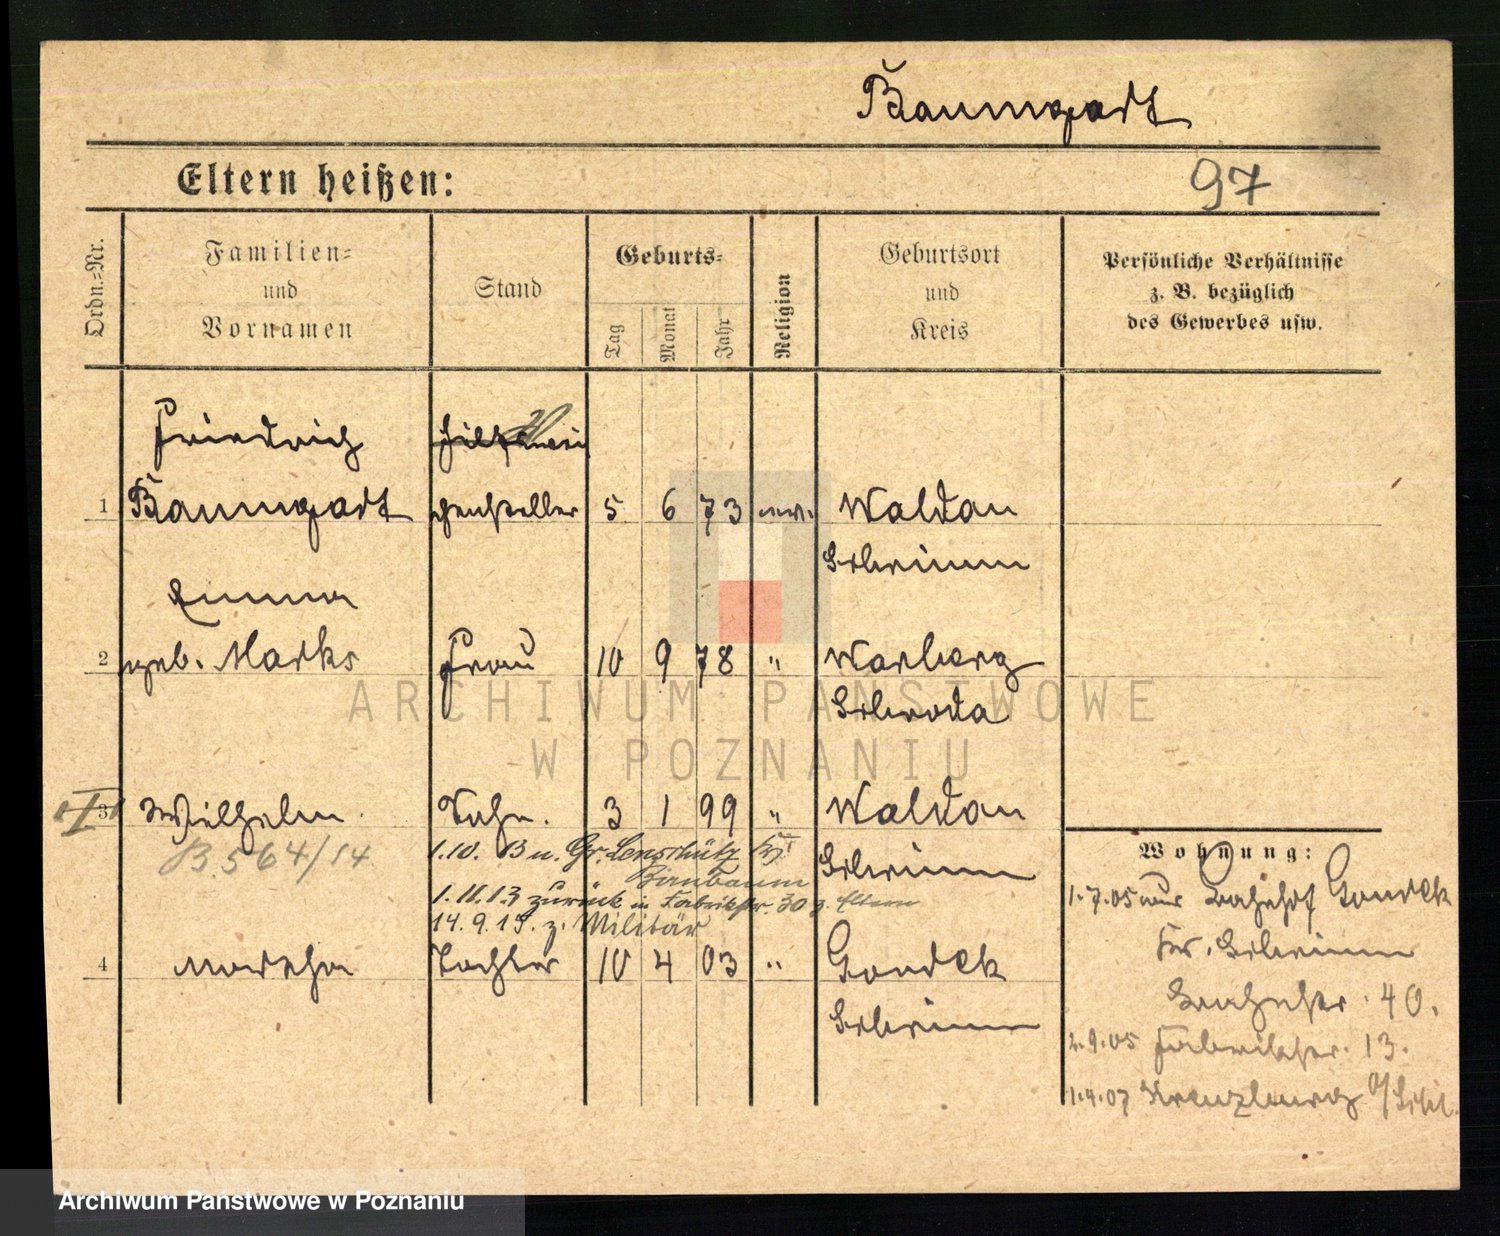 Baumgart
Eltern heißen:
97
Ordn.-Nr.
Familien-
und
Vornamen
Stand
Geburts-
Tag
Monat
Jahr
Religion
Geburtsort
und
Kreis
Persönliche Verhältnisse
z. B. bezüglich
des Gewerbes usw.
Friedrich Hilfswei
1 Baumgart chensteller 5 6 73 ev. Waldau
Schrimm
Emma
2 geb. Marks Frau 10 9 78 " Warberg
Schroda
3 Wilhelm Sohn. 3 1 99 " Waldau
Schrimm
B. 564/14
1.10. 13 n. Gr. Lenschütz Kr.
Birnbaum
1.11.13 zurück n. Fabrikstr. 30 z. Eltern
14. 9. 15. z. Militär
4 Martha Tochter 10 4 03 " Gondek
Schrimm
Wohnung:
1.7.05 von Bahnhof Gondek
Kr. Schrimm
40.
2.9.05 Fabrikstr. 13.
1.4.07 Kreuzburg O/Schl.
ARCHIWUM PAŃSTWOWE
W POZNANIU
Archiwum Państwowe w Poznaniu